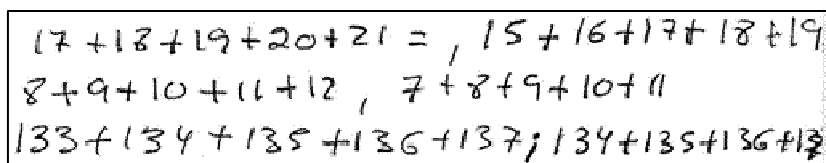 17+18+19+20+21=, 15+16+17+18+19
8+9+10+11+12, 7+8+9+10+11
133+134+135+136+137; 134+135+136+